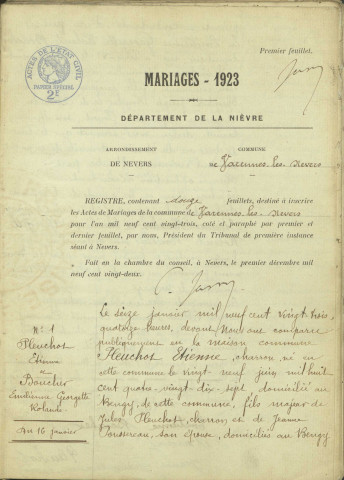 Premier feuillet.
ACTES DE L'ÉTAT CIVIL
PAPIER SPÉCIAL
2F
MARIAGES - 1923
DÉPARTEMENT DE LA NIÈVRE
ARRONDISSEMENT
DE NEVERS
COMMUNE
de Varennes-les-Nevers
REGISTRE, contenant douze feuillets, destiné à inscrire
les Actes de Mariages de la commune de Varennes-les-Nevers
pour l'an mil neuf cent vingt-trois, coté et paraphé par premier et
dernier feuillet, par nous, Président du Tribunal de première instance
séant à Nevers.
Fait en la chambre du conseil, à Nevers, le premier décembre mil
neuf cent vingt-deux.
N° 1
Pleuchot
Etienne
et
Boucher
Emilienne Georgette
Rolande
Du 16 janvier
Le seize janvier mil neuf cent vingt trois
heures, devant Nous ont comparu
publiquement en la maison commune
Pleuchot Etienne, charron, né en
cette commune le vingt neuf juin mil huit
cent quatre-vingt-dix-sept domicilié au
de cette commune, fils majeur de
Jules Pleuchot, charron, et de Jeanne
son épouse, domiciliés au